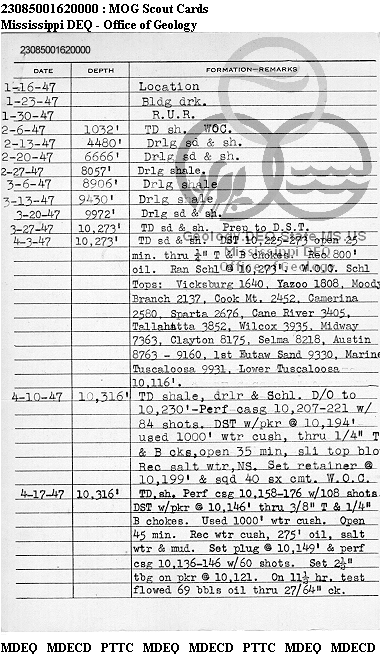 23085001620000 : MOG Scout Cards
Mississippi DEQ - Office of Geology
23085001620000
DATE DEPTH FORMATION—REMARKS
1-16-47 Location
1-23-47 Bldg drk.
1-30-47 R.U.R.
2-6-47 1032' TD sh. WOC.
2-13-47 4480' Drlg sd & sh.
2-20-47 6666' Drlg sd & sh.
2-27-47 8057' Drlg shale.
3-6-47 8906' Drlg shale
3-13-47 9430' Drlg shale
3-20-47 9972' Drlg sd & sh.
3-27-47 10,273' TD sd & sh. Prep to D.S.T.
4-3-47 10,273' TD sd & sh. DST 10,225-273 open 25
min. thru ¼" T & B chokes. Rec 800'
oil. Ran Schl @ 10,273'. W.O.C. Schl
Tops: Vicksburg 1640, Yazoo 1808, Moody
Branch 2137, Cook Mt. 2452, Camerina
2580, Sparta 2676, Cane River 3405,
Tallahatta 3852, Wilcox 3935, Midway
7363, Clayton 8175, Selma 8218, Austin
8763 - 9160, 1st Eutaw Sand 9330, Marine
Tuscaloosa 9931, Lower Tuscaloosa
10,116'.
4-10-47 10,316' TD shale, drlr & Schl. D/O to
10,230'-Perf casg 10,207-221 w/
84 shots. DST w/pkr @ 10,194'
used 1000' wtr cush, thru 1/4" T
& B cks,open 35 min, sli top blo
Rec salt wtr,NS. Set retainer @
10,199' & sqd 40 sx cmt. W.O.C.
4-17-47 10,316' TD,sh. Perf csg 10,158-176 w/108 shots.
DST w/pkr @ 10,146' thru 3/8" T & 1/4"
B chokes. Used 1000' wtr cush. Open
45 min. Rec wtr cush, 275' oil, salt
wtr & mud. Set plug @ 10,149' & perf
csg 10,136-146 w/60 shots. Set 2½"
tbg on pkr @ 10,121. On 11½ hr. test
flowed 69 bbls oil thru 27/64" ck.
MDEQ MDECD PTTC MDEQ MDECD PTTC MDEQ MDECD